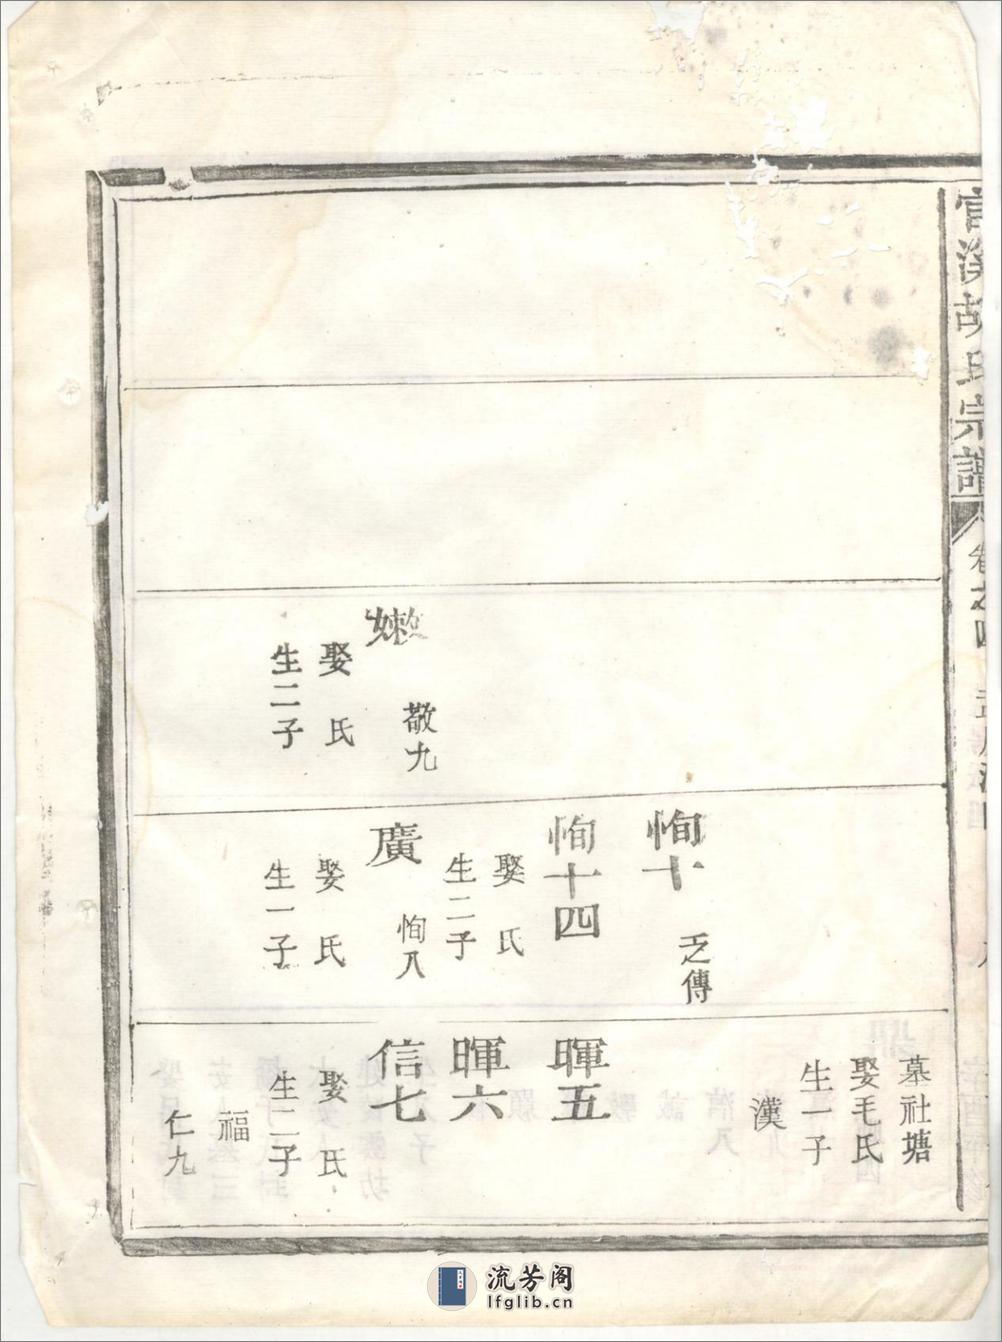 官溪胡氏宗譜
卷之四
嫩
敬九
娶 氏
生二子
恂十
乏傳
恂十四
娶 氏
生二子
廣
恂八
娶 氏
生一子
墓社塘
娶毛氏
生一子
漢
暉五
暉六
信七
娶 氏
生二子
福
仁九
流芳阁
lfglib.cn